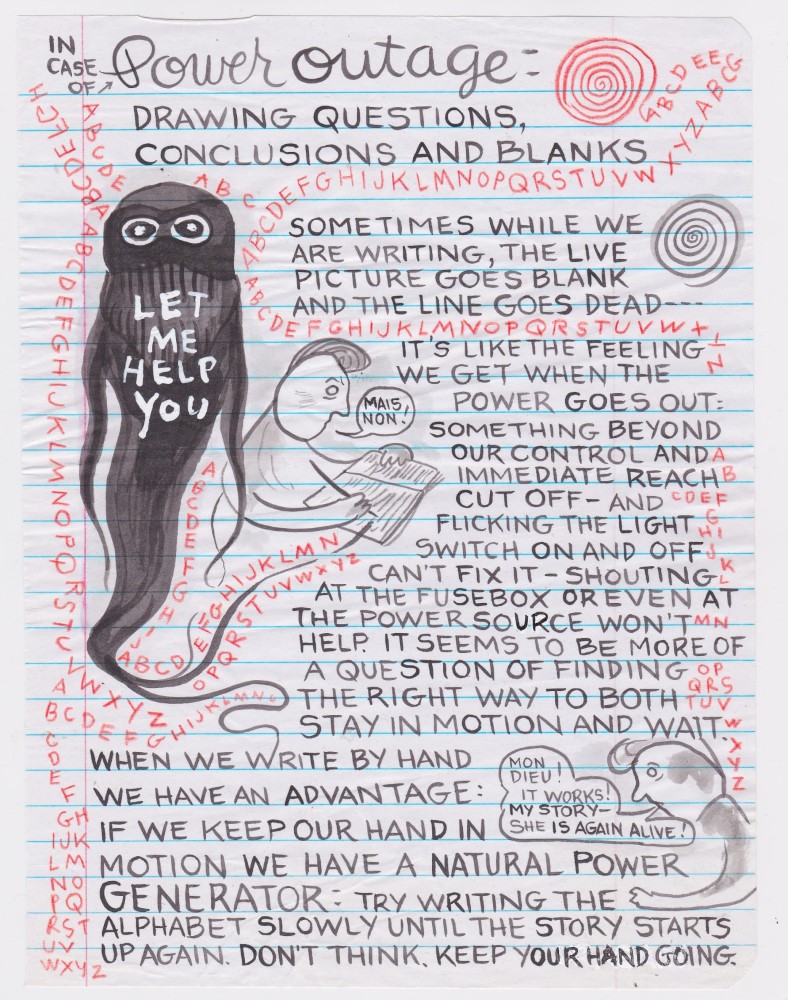 IN CASE OF → Power outage:
DRAWING QUESTIONS,
CONCLUSIONS AND BLANKS
SOMETIMES WHILE WE
ARE WRITING, THE LIVE
PICTURE GOES BLANK
AND THE LINE GOES DEAD---
IT'S LIKE THE FEELING
WE GET WHEN THE
POWER GOES OUT:
SOMETHING BEYOND
OUR CONTROL AND
IMMEDIATE REACH
CUT OFF - AND
FLICKING THE LIGHT
SWITCH ON AND OFF
CAN'T FIX IT - SHOUTING
AT THE FUSEBOX OR EVEN AT
THE POWER SOURCE WON'T
HELP. IT SEEMS TO BE MORE OF
A QUESTION OF FINDING
THE RIGHT WAY TO BOTH
STAY IN MOTION AND WAIT.
LET
ME
HELP
YOU
MAIS
NON!
WHEN WE WRITE BY HAND
WE HAVE AN ADVANTAGE:
IF WE KEEP OUR HAND IN
MOTION WE HAVE A NATURAL POWER
GENERATOR: TRY WRITING THE
ALPHABET SLOWLY UNTIL THE STORY STARTS
UP AGAIN. DON'T THINK. KEEP YOUR HAND GOING.
MON
DIEU!
IT WORKS!
MY STORY-
SHE IS AGAIN ALIVE!
ABCDEFGHIJKLMNOPQRSTUVWXYZ
ABCDEFG
ABCDEFGHIJKLMNOPQRSTUVW
A
B
CDEF
G
HI
J
K
L
MN
OP
QRS
TUV
W
X
Y
Z
A
BCDEFGHIJKLMN
C
D
E
F
GH
IJK
LM
NO
PQ
RST
UV
WXYZ